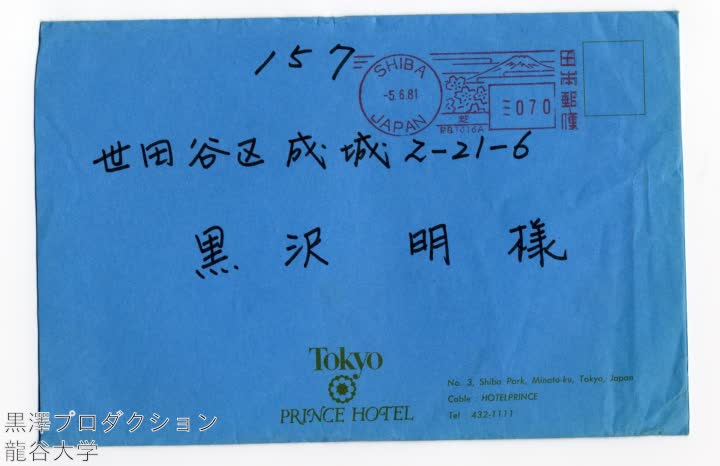 157
SHIBA
-5.6.81
JAPAN
070
RB1016A
日本郵便
世田谷区成城2-21-6
黒沢 明 様
Tokyo
PRINCE HOTEL
No. 3, Shiba Park, Minato-ku, Tokyo, Japan
Cable : HOTELPRINCE
Tel 432-1111
黒澤プロダクション
龍谷大学